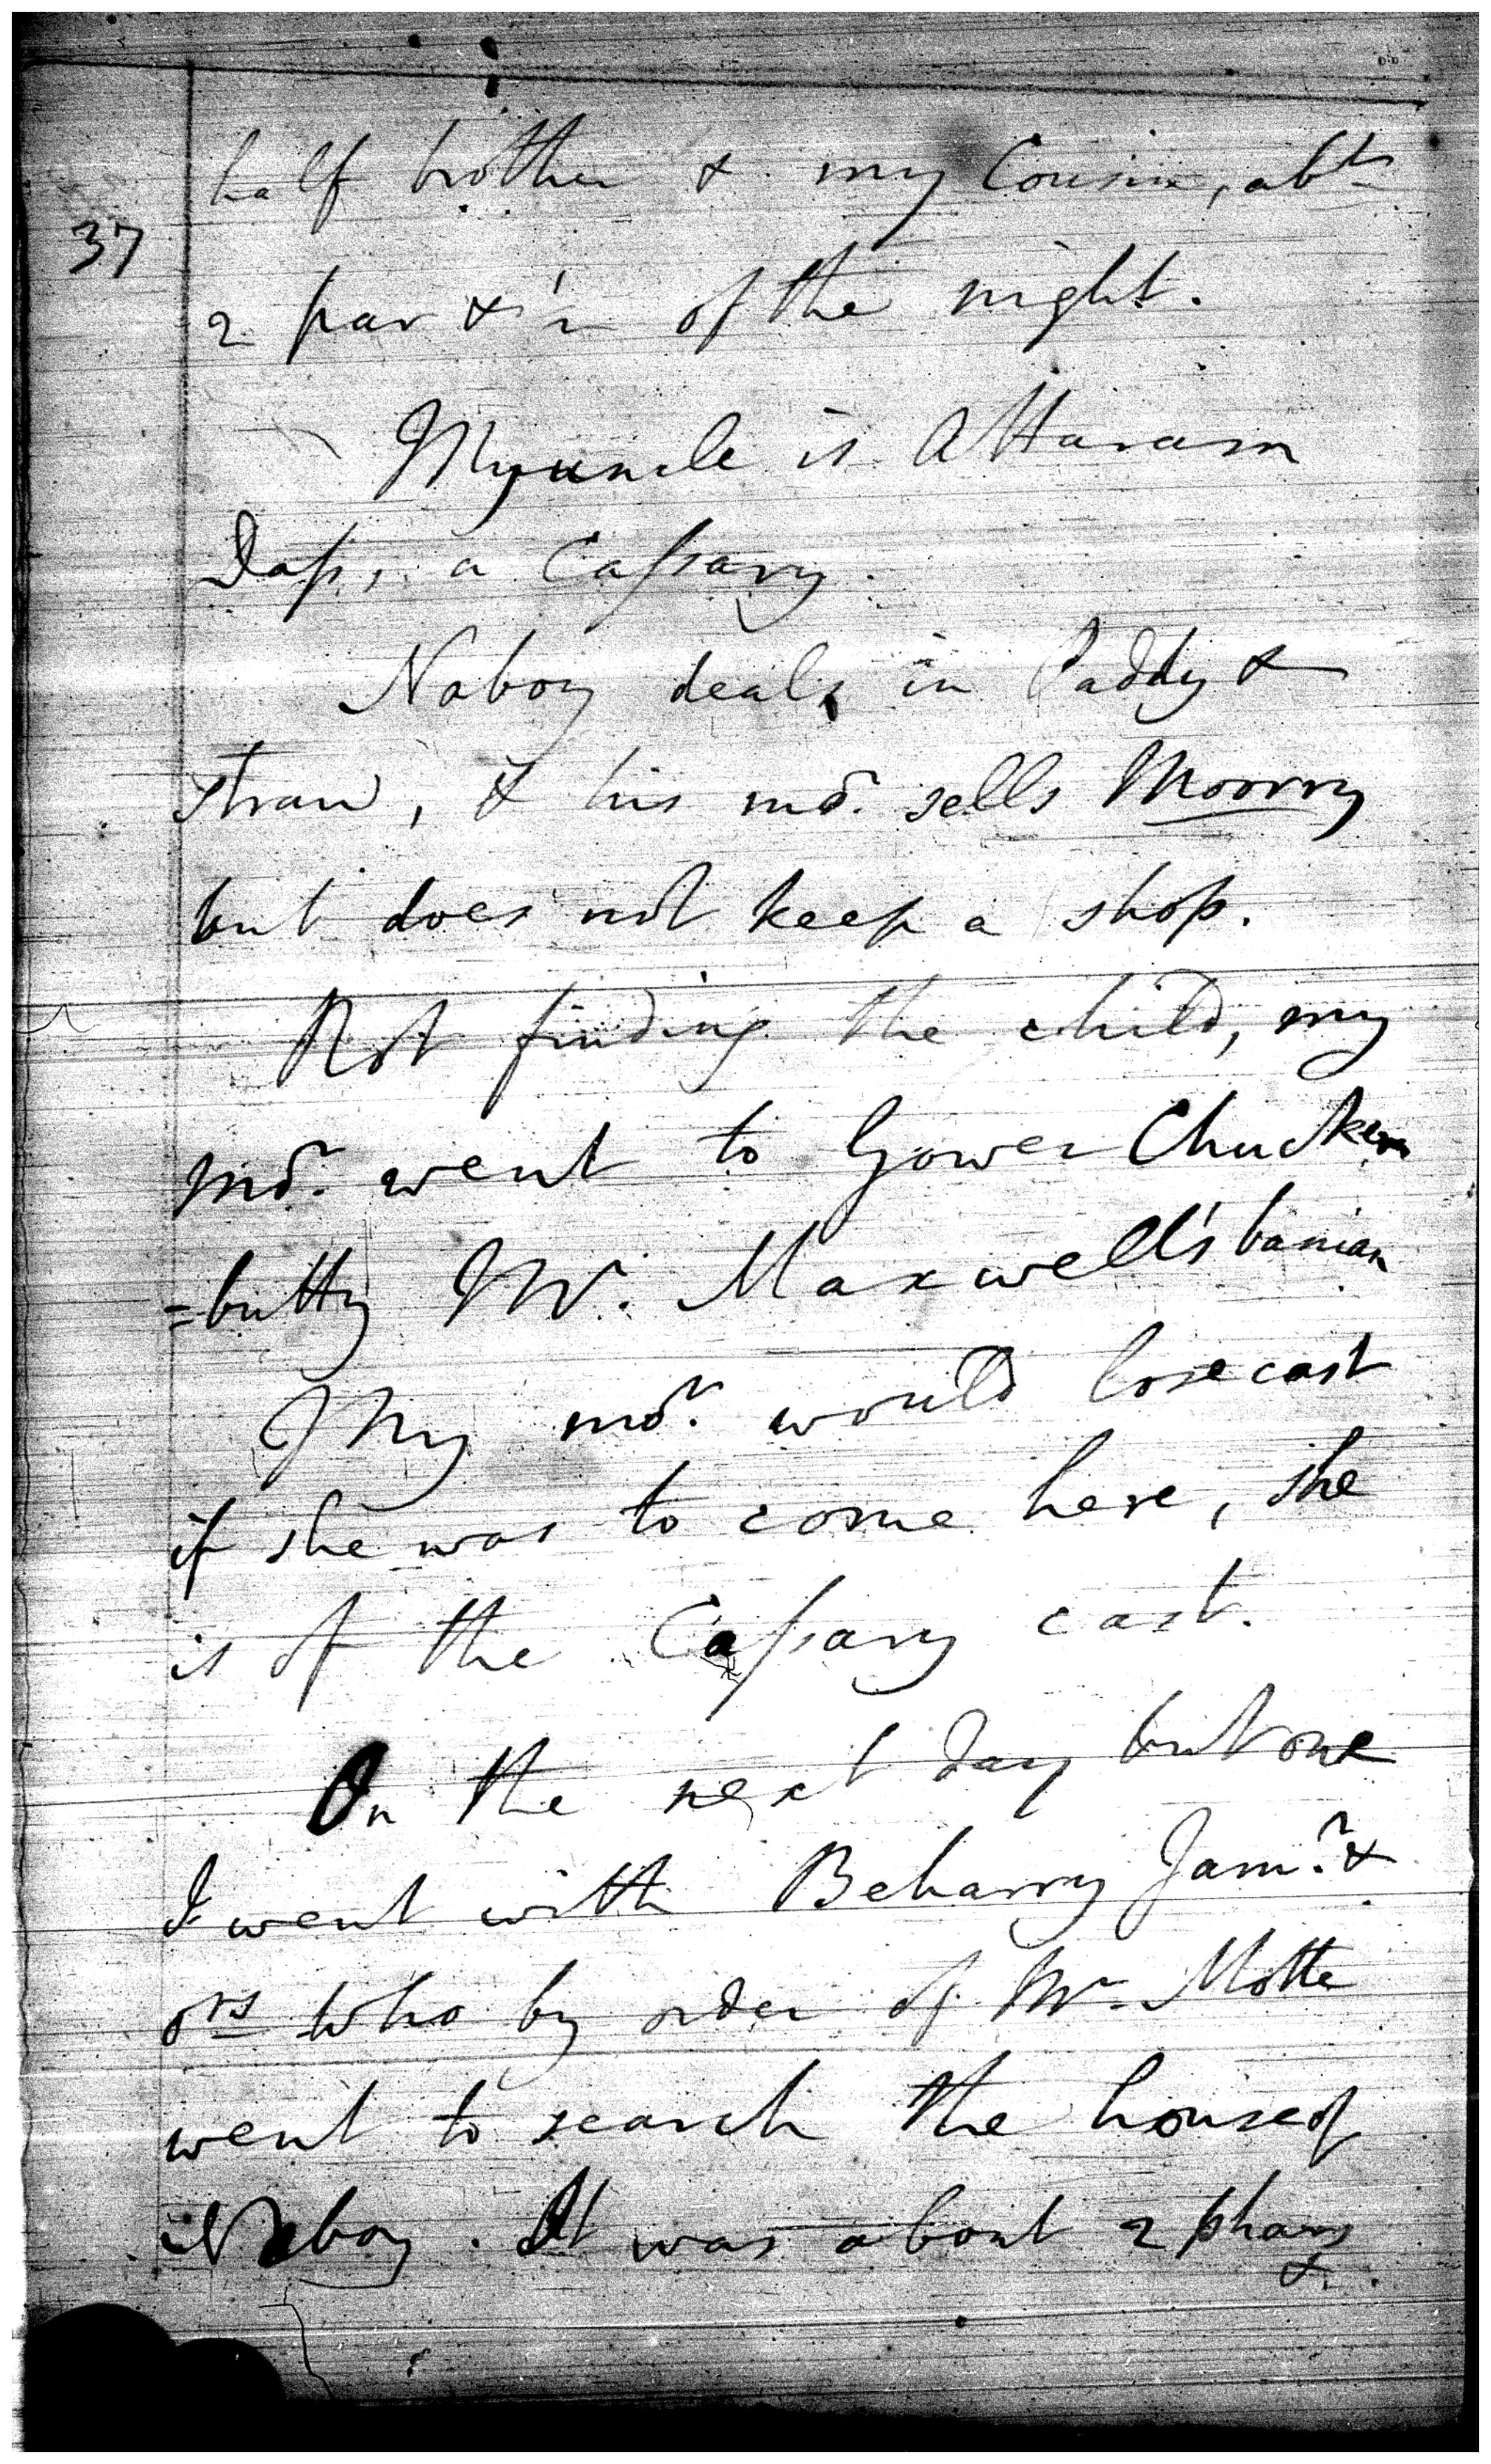 half brother & my Cousin, abt
37
2 par & ½ of the night.
My uncle is Attaram
Dass, a Cassary.
Naboy deals in Paddy &
straw, & his mor. sells Moorry
but does not keep a shop.
Not finding the child, my
mor. went to Gower Chucker
=butty Mr. Maxwell's banian
My mor. would lose cast
if she was to come here, she
is of the Cassary cast.
On the next day but one
I went with Beharry Jamr. &
ors who by order of Mr. Motte
went to search the house of
Naboy. It was about 2 phars
&